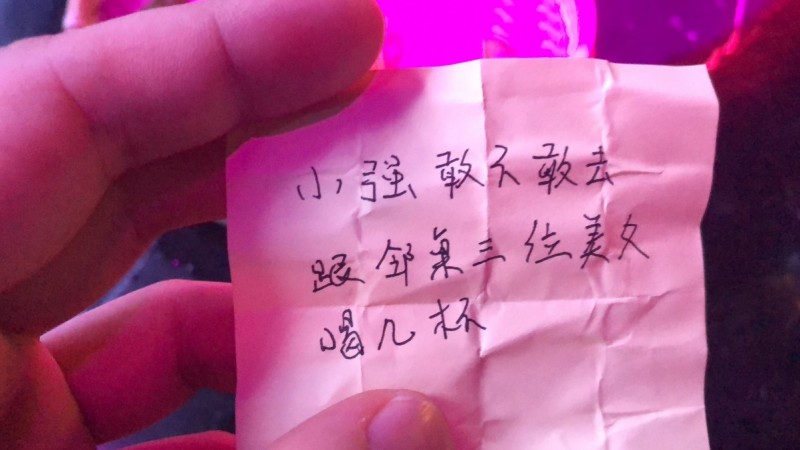 小强敢不敢去
跟邻桌三位美女
喝几杯